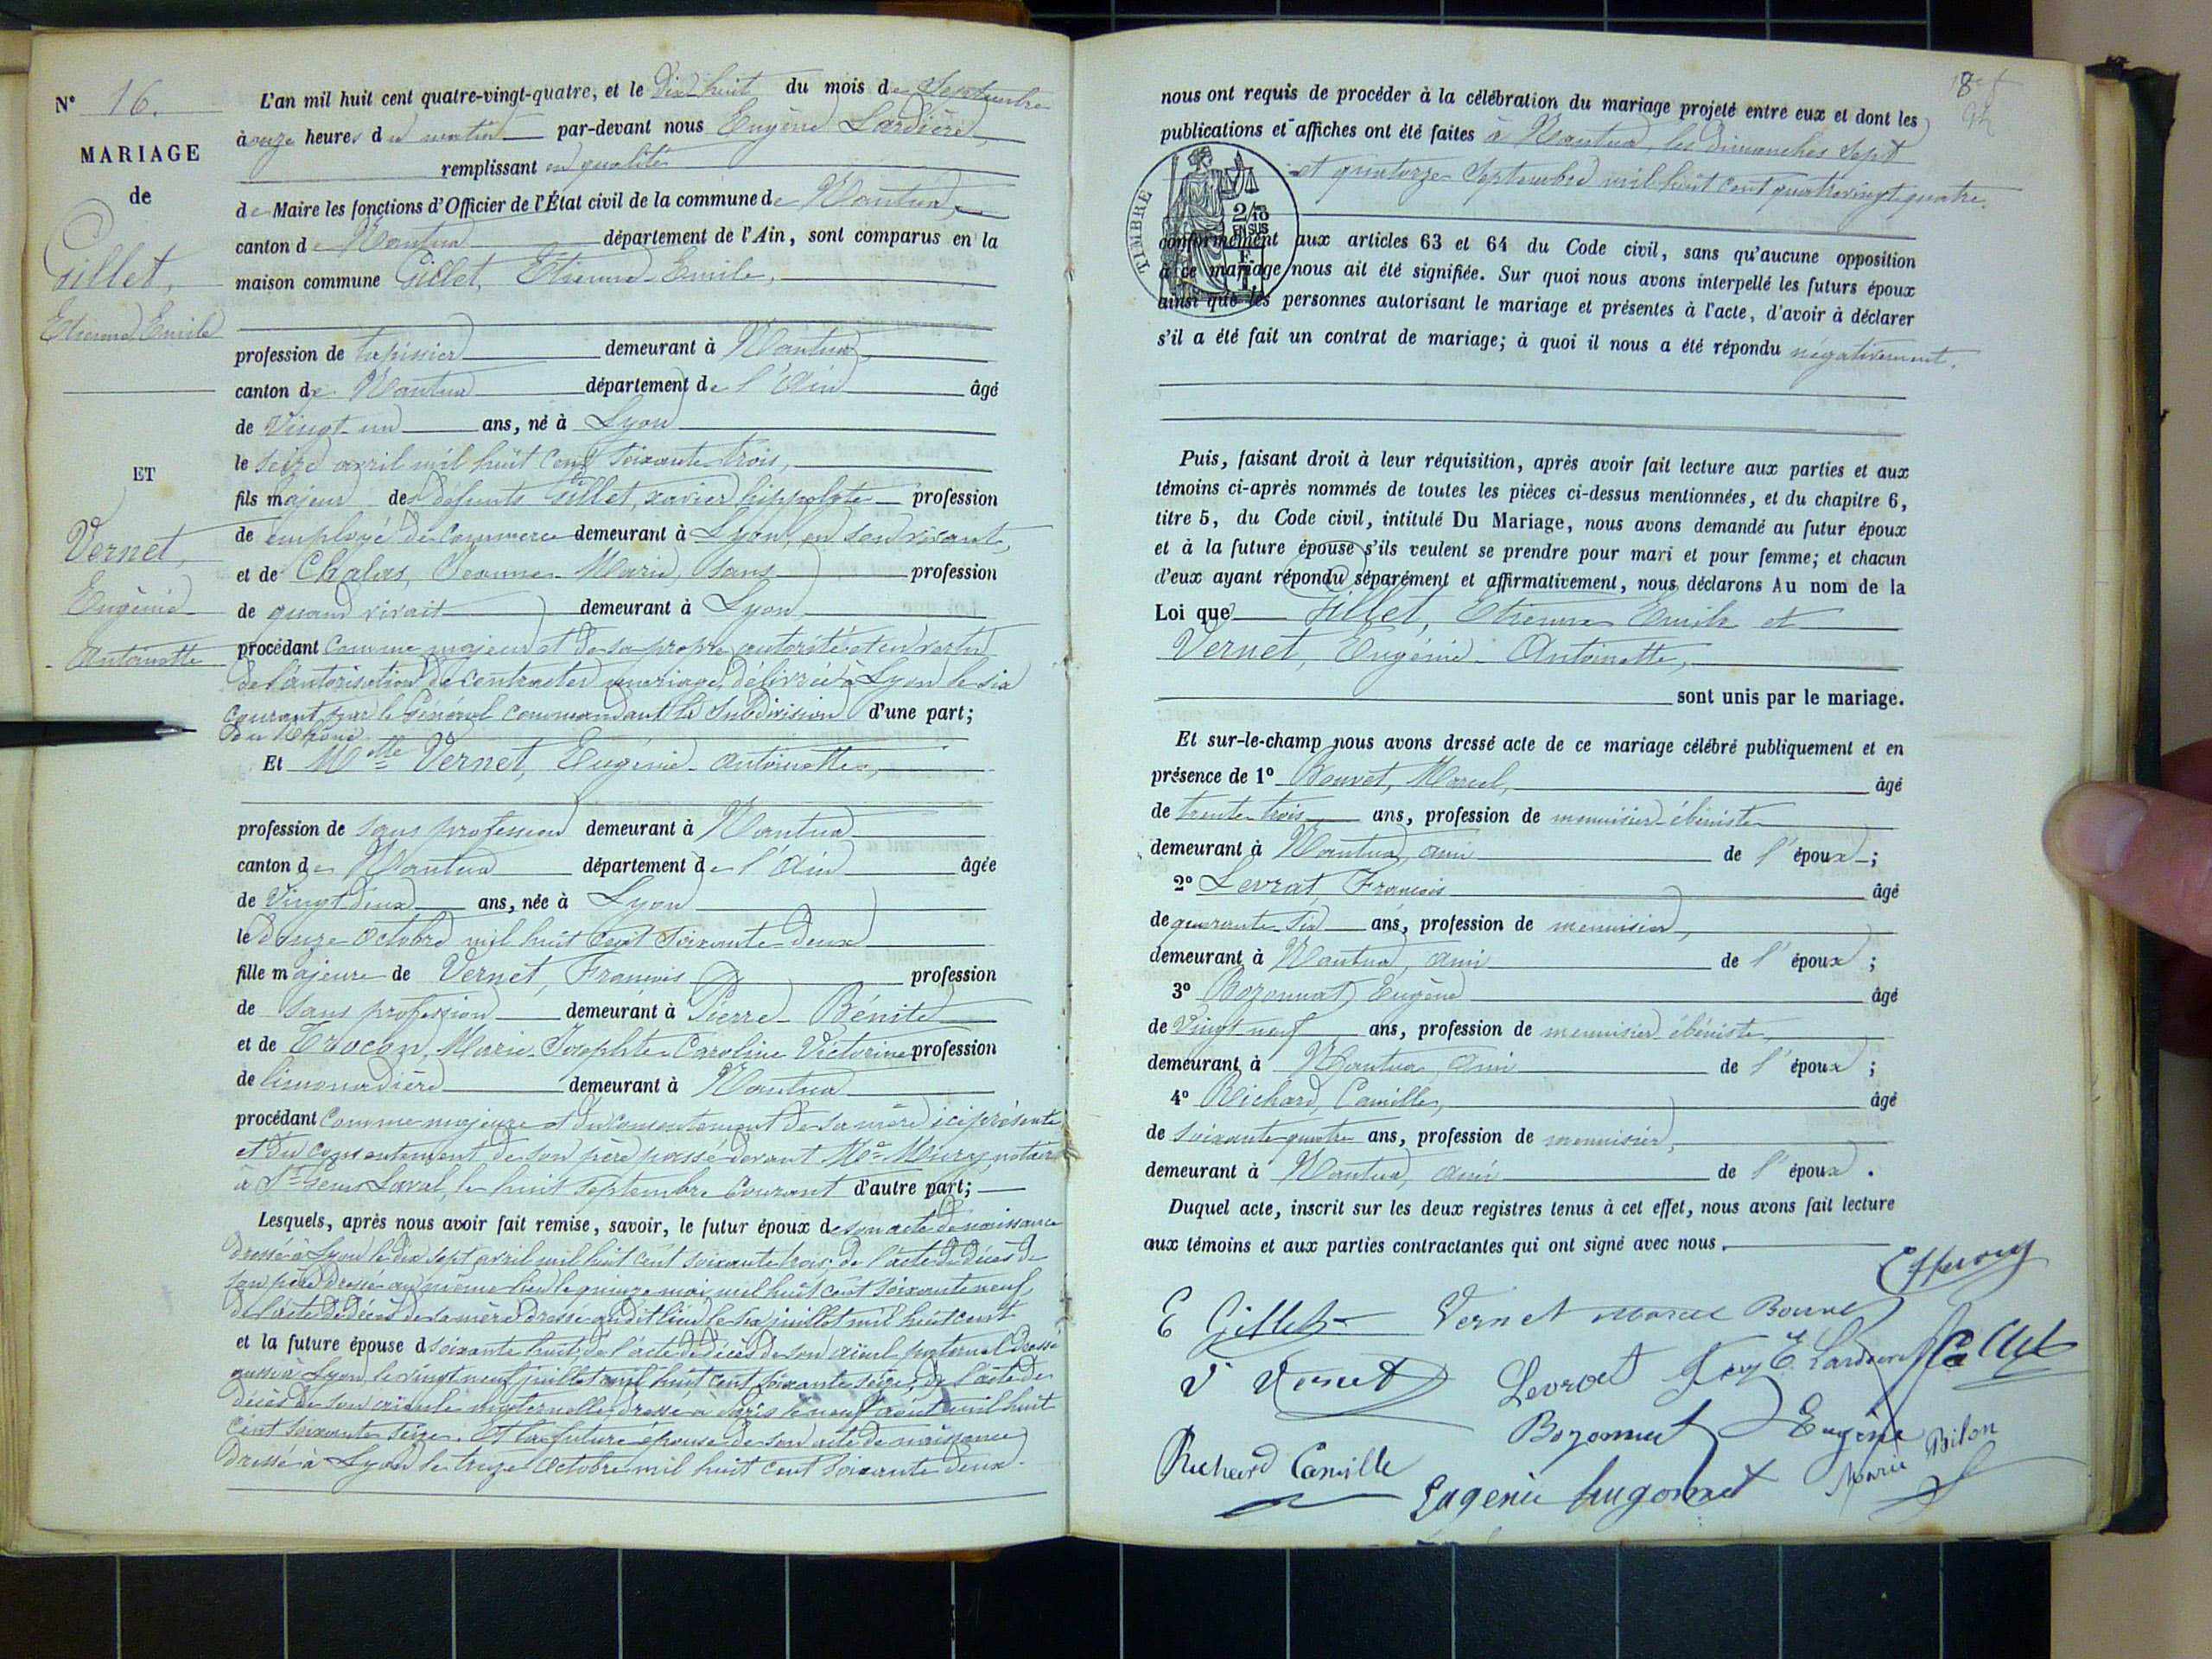 N° 16.
MARIAGE
de
Gillet,
Etienne Emile
ET
Vernet,
Eugénie
Antoinette
L'an mil huit cent quatre-vingt-quatre, et le Dix huit du mois de Septembre
à onze heures du matin par-devant nous Eugène Lardière,
remplissant en qualité
de Maire les fonctions d'Officier de l'État civil de la commune de Nantua,
canton de Nantua département de l'Ain, sont comparus en la
maison commune Gillet, Etienne Emile,
profession de tapissier demeurant à Nantua,
canton de Nantua département de l'Ain âgé
de Vingt-un ans, né à Lyon
le Seize avril mil huit cent soixante trois,
fils majeur des défunts Gillet, xavier hippolyte profession
de employé de commerce demeurant à Lyon, en son vivant,
et de Chalas, Jeanne Marie, sans profession
de quand vivait demeurant à Lyon
procédant comme majeur et de sa propre autorité et en vertu
de l'autorisation de contracter mariage, délivrée à Lyon le six
courant par le Général commandant la Subdivision d'une part;
du Rhône
Et Melle Vernet, Eugénie Antoinette,
profession de sans profession demeurant à Nantua
canton de Nantua département de l'Ain âgée
de Vingt deux ans, née à Lyon
le Douze Octobre mil huit cent soixante deux
fille majeure de Vernet, François profession
de sans profession demeurant à Pierre-Bénite
et de Trocon, Marie Josephte Caroline Victorine profession
de limonadière demeurant à Nantua
procédant comme majeure et du consentement de sa mère ici présente
et du consentement de son père passé devant Me Mury notaire
à St Genis Laval, le huit septembre courant d'autre part;
Lesquels, après nous avoir fait remise, savoir, le futur époux de son acte de naissance
dressé à Lyon le dix sept avril mil huit cent soixante trois, de l'acte de décès de
son père dressé au même lieu le quinze mai mil huit cent soixante neuf,
de l'acte de décès de sa mère dressé au dit lieu le six juillet mil huit cent
et la future épouse d soixante huit, de l'acte de décès de son aïeul paternel dressé
aussi à Lyon, le vingt neuf juillet mil huit cent soixante seize, de l'acte de
décès de son aïeule maternelle, dressé à Paris le neuf août mil huit
cent soixante seize. Et la future épouse de son acte de naissance
dressé à Lyon le treize Octobre mil huit cent soixante deux.
nous ont requis de procéder à la célébration du mariage projeté entre eux et dont les
publications et affiches ont été faites à Nantua, les dimanches sept
et quatorze Septembre mil huit cent quatrevingt-quatre.
TIMBRE
2/10
EN SUS
conformément aux articles 63 et 64 du Code civil, sans qu'aucune opposition
à ce mariage nous ait été signifiée. Sur quoi nous avons interpellé les futurs époux
ainsi que les personnes autorisant le mariage et présentes à l'acte, d'avoir à déclarer
s'il a été fait un contrat de mariage; à quoi il nous a été répondu négativement.
Puis, faisant droit à leur réquisition, après avoir fait lecture aux parties et aux
témoins ci-après nommés de toutes les pièces ci-dessus mentionnées, et du chapitre 6,
titre 5, du Code civil, intitulé Du Mariage, nous avons demandé au futur époux
et à la future épouse s'ils veulent se prendre pour mari et pour femme; et chacun
d'eux ayant répondu séparément et affirmativement, nous déclarons Au nom de la
Loi que Gillet, Etienne Emile et
Vernet, Eugénie Antoinette,
sont unis par le mariage.
Et sur-le-champ nous avons dressé acte de ce mariage célébré publiquement et en
présence de 1° Bouvet, Marcel, âgé
de trente-trois ans, profession de menuisier-ébéniste
demeurant à Nantua, ami de l'époux;
2° Levrat, François âgé
de quarante-six ans, profession de menuisier,
demeurant à Nantua, ami de l'époux;
3° Bozonnat, Eugène âgé
de Vingt-neuf ans, profession de menuisier ébéniste,
demeurant à Nantua, ami de l'époux;
4° Richard, Camille, âgé
de soixante quatre ans, profession de menuisier,
demeurant à Nantua, ami de l'époux.
Duquel acte, inscrit sur les deux registres tenus à cet effet, nous avons fait lecture
aux témoins et aux parties contractantes qui ont signé avec nous.
E Gillet Vernet Marcel Bouvet
V Vernet Levrat E. Lardière
Bozonnat Eugène
Richard Camille Eugenie hugonnet Marie Bilon